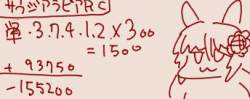 サウジアラビアRC
単・3.7.4.1.2×300
=1500
+ 93750
-155200